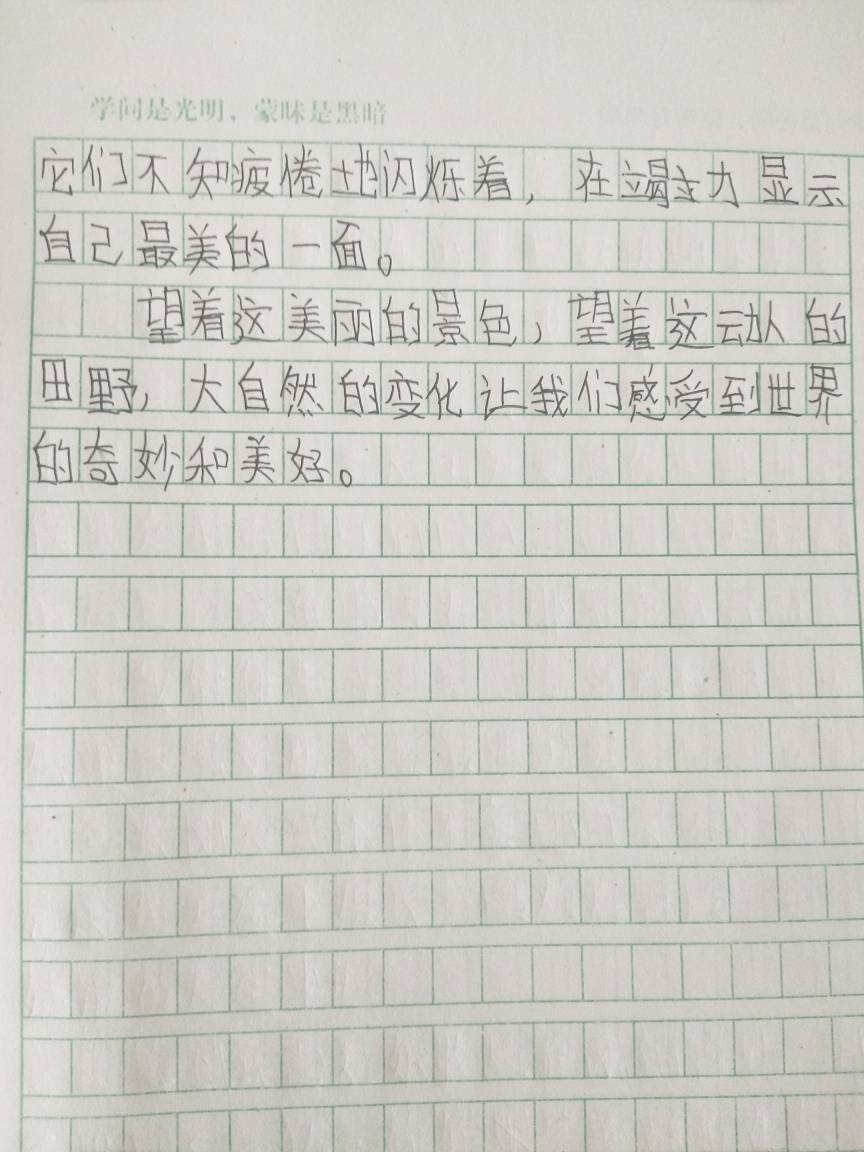 学问是光明，蒙昧是黑暗
它们不知疲倦地闪烁着，在竭力显示
自己最美的一面。
望着这美丽的景色，望着这动人的
田野，大自然的变化让我们感受到世界
的奇妙和美好。